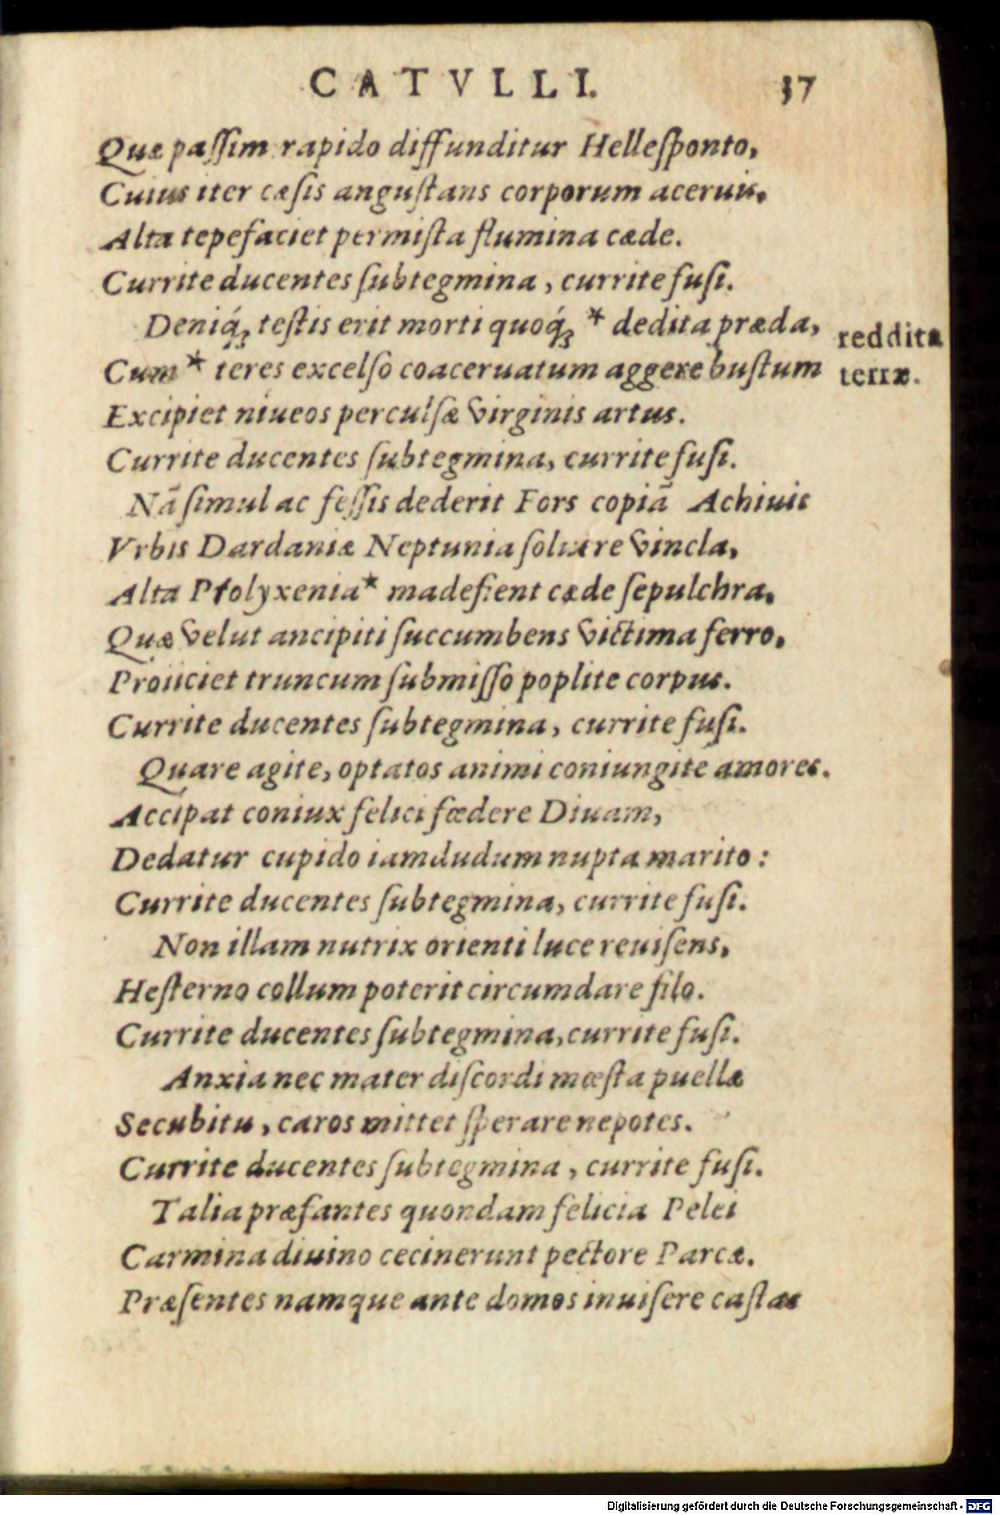 CATVLLI. 37
Quæ paſſim rapido diffunditur Helleſponto,
Cuius iter cæſis anguſtans corporum aceruis,
Alta tepefaciet permiſta flumina cæde.
Currite ducentes ſubtegmina, currite fuſi.
Deniq́; teſtis erit morti quoq́; * dedita præda, reddita
Cum * teres excelſo coaceruatum aggere buſtum terræ.
Excipiet niueos perculſæ virginis artus.
Currite ducentes ſubtegmina, currite fuſi.
Nã ſimul ac feſſis dederit Fors copiã Achiuis
Vrbis Dardaniæ Neptunia ſoluere vincla,
Alta Polyxenia * madefient cæde ſepulchra,
Quæ velut ancipiti ſuccumbens victima ferro,
Proiiciet truncum ſubmiſſo poplite corpus.
Currite ducentes ſubtegmina, currite fuſi.
Quare agite, optatos animi coniungite amores.
Accipat coniux felici fœdere Diuam,
Dedatur cupido iamdudum nupta marito:
Currite ducentes ſubtegmina, currite fuſi.
Non illam nutrix orienti luce reuiſens,
Heſterno collum poterit circumdare filo.
Currite ducentes ſubtegmina, currite fuſi.
Anxia nec mater diſcordi mœſta puellæ
Secubitu, caros mittet ſperare nepotes.
Currite ducentes ſubtegmina, currite fuſi.
Talia præfantes quondam felicia Pelei
Carmina diuino cecinerunt pectore Parcæ.
Præſentes namque ante domos inuiſere caſtas
Digitalisierung gefördert durch die Deutsche Forschungsgemeinschaft - DFG